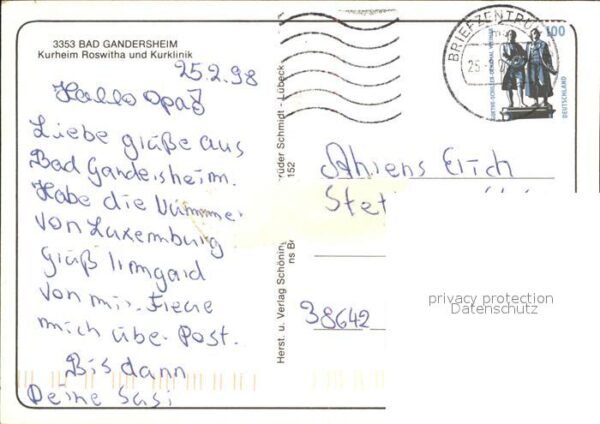 3353 BAD GANDERSHEIM
Kurheim Roswitha und Kurklinik
25.2.98
Hallo Opa
Liebe grüße aus
Bad Gandersheim.
Habe die Nummer
von Luxemburg
grüß Irmgard
von mir. Freue
mich über Post.
Bis dann
Deine Sasi
Herst. u. Verlag Schöning
rüder Schmidt - Lübeck
152
BRIEFZENTRUM
25
100
GOETHE-SCHILLER-DENKMAL
DEUTSCHLAND
Ahrens Erich
Stet
38642
privacy protection
Datenschutz